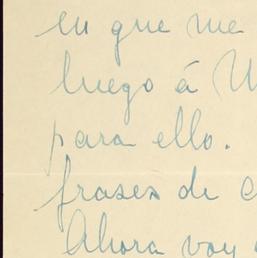 en que me
luego á
para ello.
frases de
Ahora voy